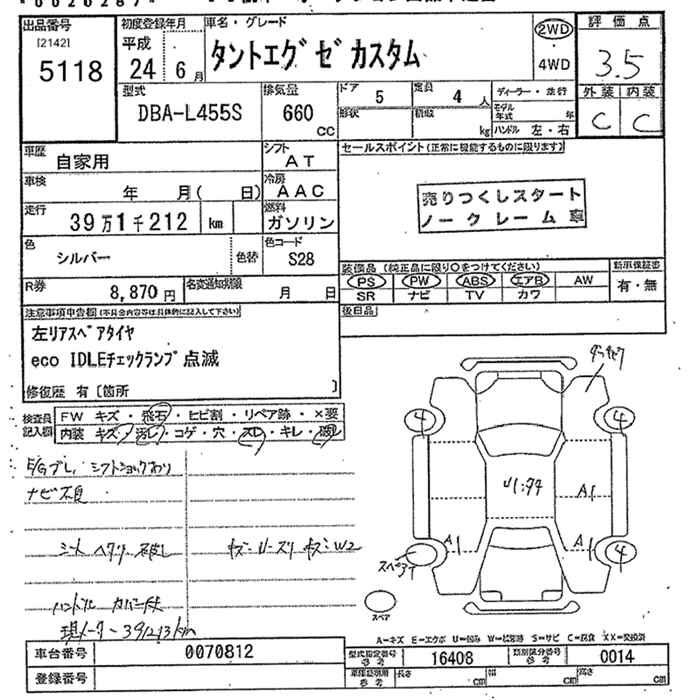 出品番号
[2142]
5118
初度登録年月
平成
24年6月
車名・グレード
タントエグゼカスタム
2WD
・
4WD
評価点
3.5
外装 内装
C C
型式
DBA-L455S
排気量
660
cc
ドア 5
定員 4人
形状
積載 kg
ディーラー・並行
モデル年式 年
ハンドル 左・右
車歴
自家用
シフト
AT
セールスポイント(正常に機能するものに限ります)
車検
年 月( 日)
冷房
AAC
売りつくしスタート
ノークレーム車
走行
39万1千212 km
燃料
ガソリン
色
シルバー
色替
色コード
S28
装備品(純正品に限り○をつけてください)
PS PW ABS エアB AW
SR ナビ TV カワ
新車保証書
有・無
R券
8,870円
名変通知期限
月 日
後日品
注意事項申告欄(不具合内容等は具体的に記入して下さい)
左リアスペアタイヤ
eco IDLEチェックランプ点滅
修復歴 有[箇所 ]
検査員記入欄
FW キズ・飛石・ヒビ割・リペア跡・×要
内装 キズ・汚レ・コゲ・穴・スレ・キレ・破レ
E/Gブレ、シフトショックあり
ナビ不良
シート ヘタリ 破レ
ハンドル カバー付
現メーター391213km
4
4
A1
A1
A1
4
スペア
スペア
A=キズ E=エクボ U=凹み W=補修跡 S=サビ C=腐食 XX=交換済
車台番号
0070812
型式指定番号
参考
16408
類別区分番号
参考
0014
登録番号
車庫証明用
参考
長さ cm
幅 cm
高さ cm